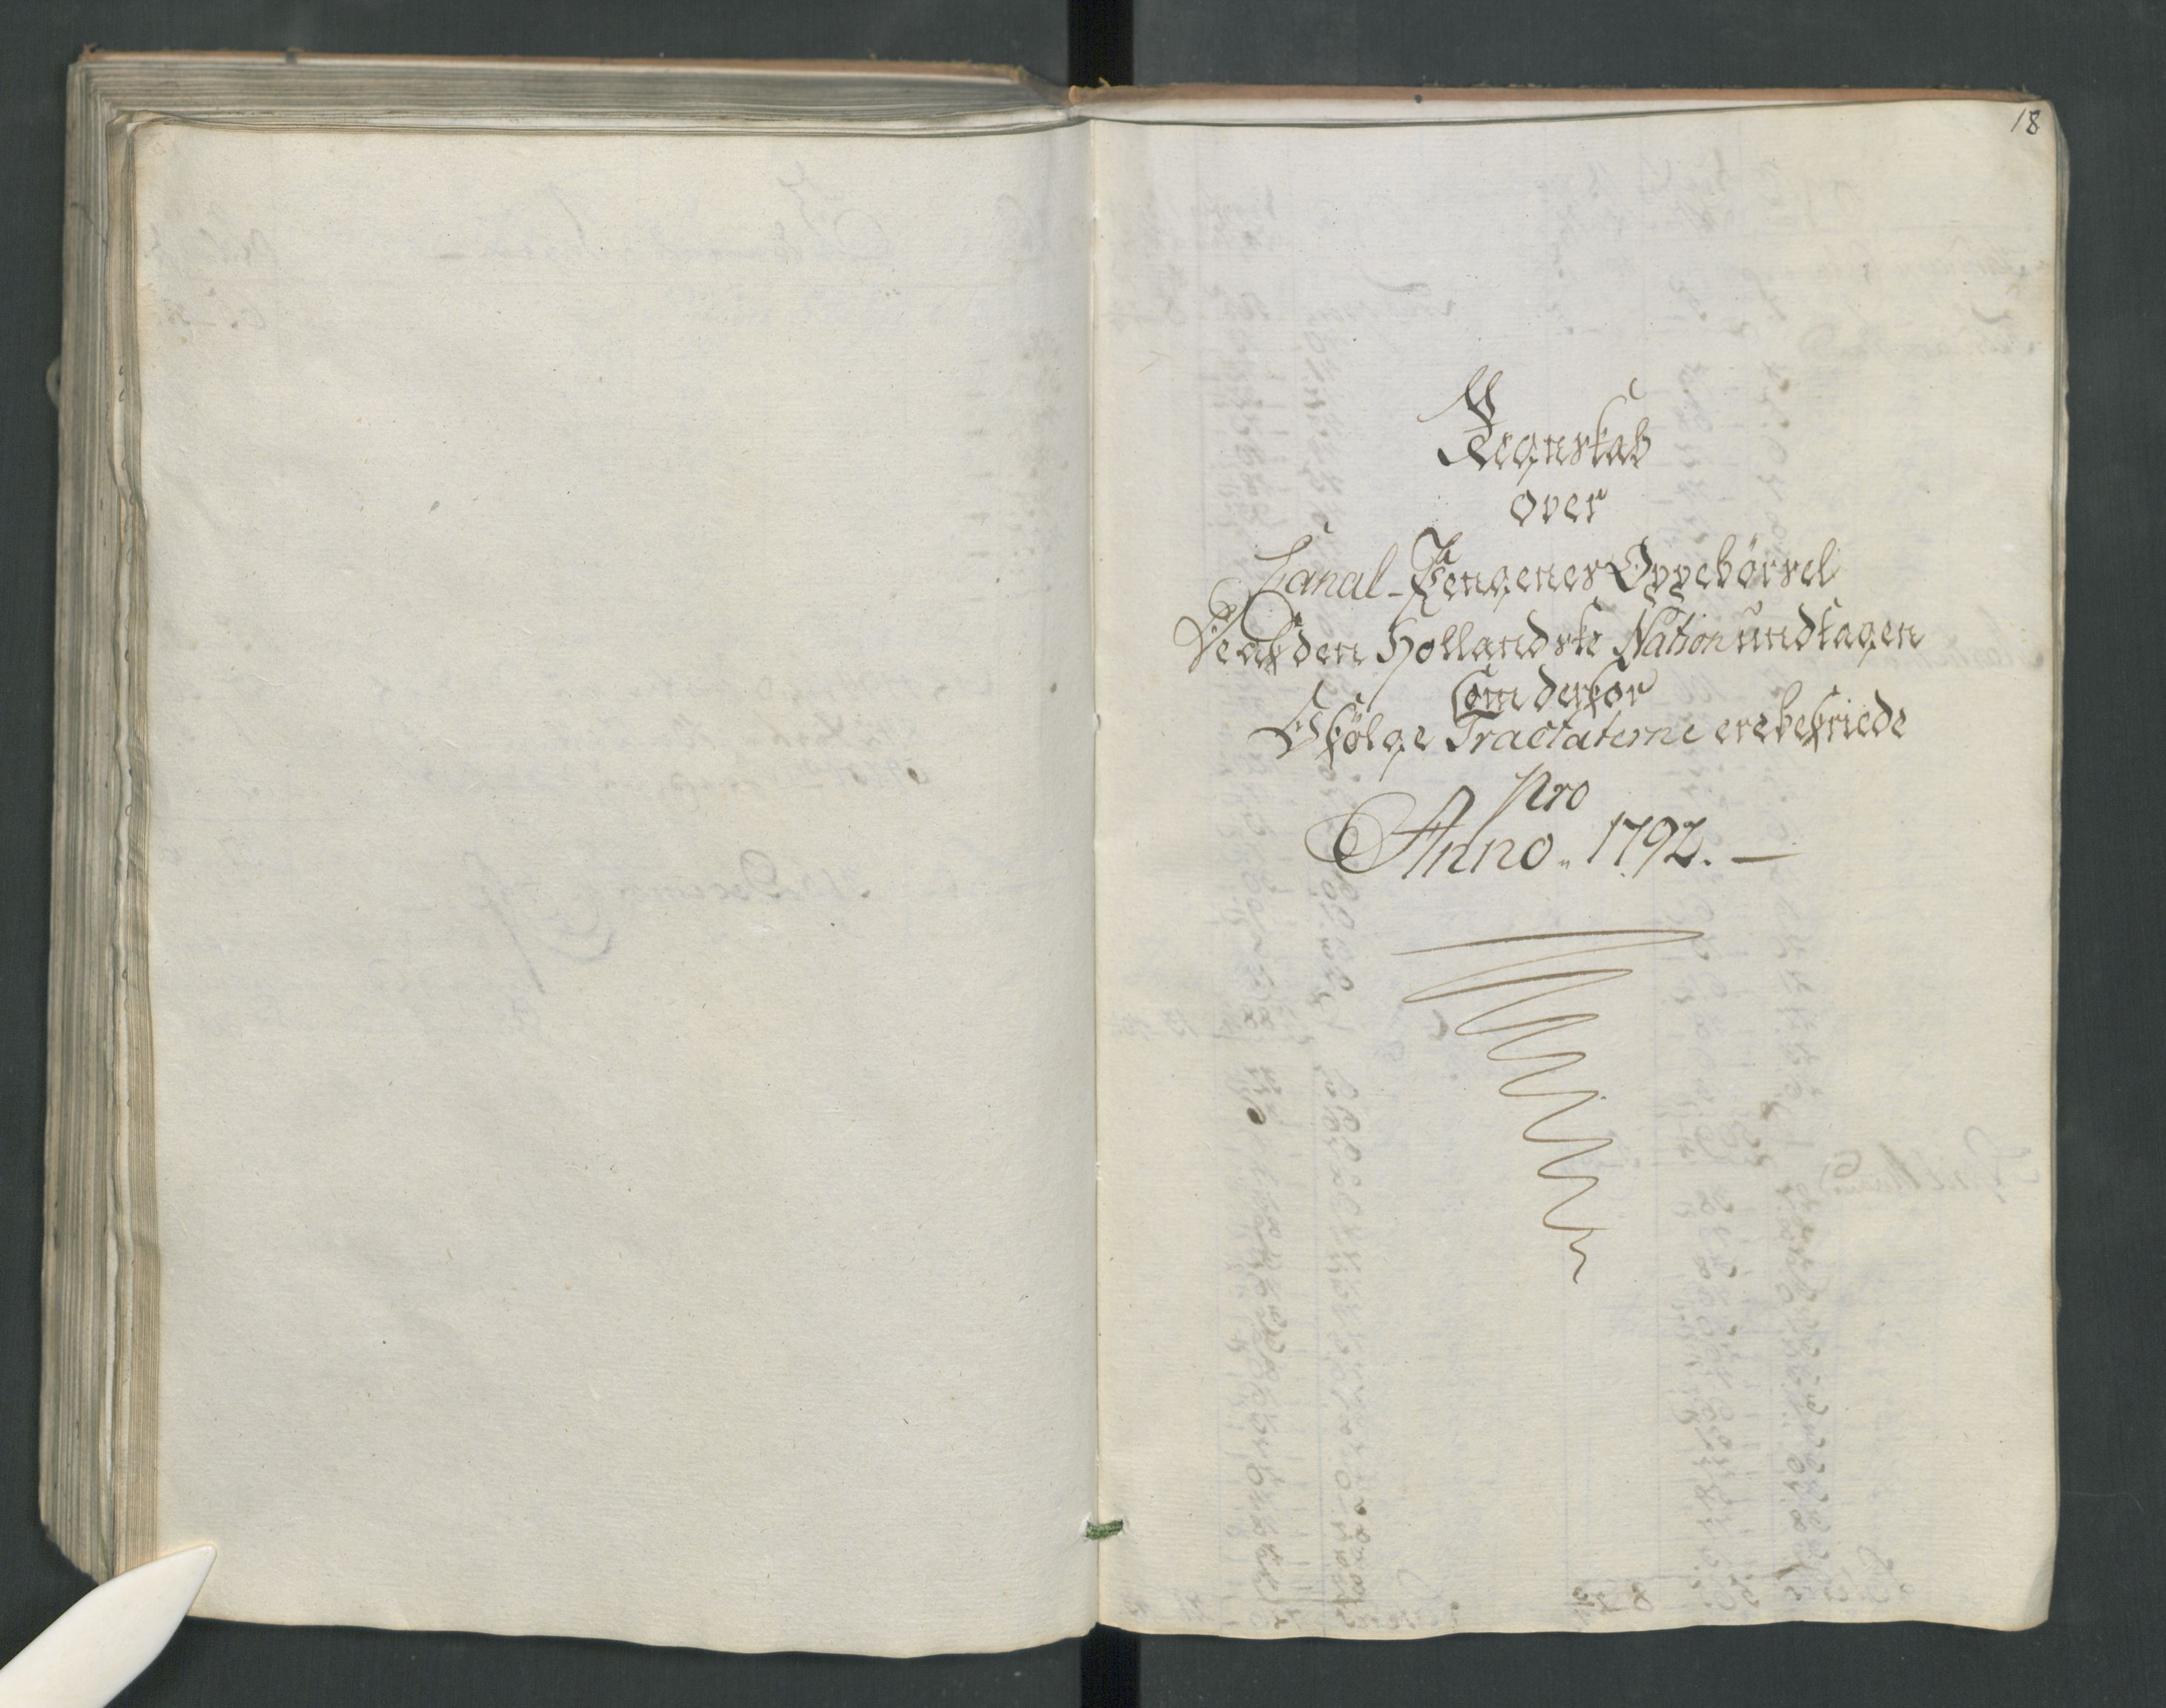 18
Regnskab
over
Canal-Pengenes Oppebørsel
den Hollandske Nation undtagen
Som derfor
følge Tractaterne ere befriede
pro
Anno 1792.